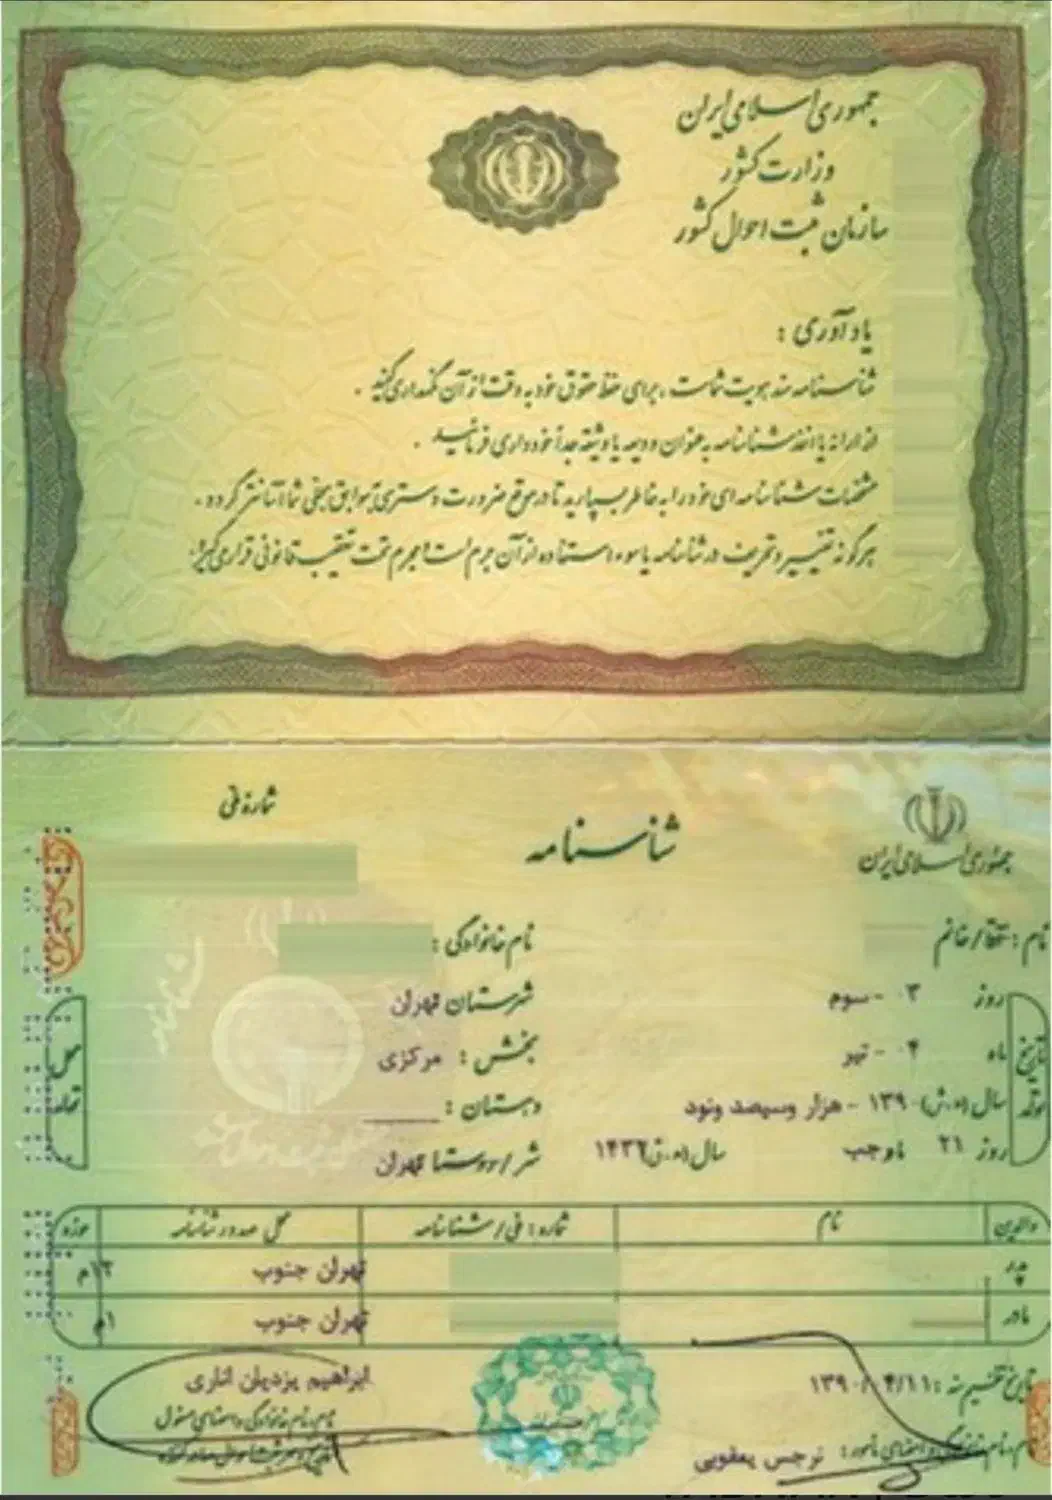 جمهوری اسلامی ایران
وزارت کشور
سازمان ثبت احوال کشور
یادآوری :
شناسنامه سند هویت شماست ، برای حفظ حقوق خود به دقت از آن نگهداری کنید .
از ارائه یا اخذ شناسنامه به عنوان ودیعه یا وثیقه جداً خودداری فرمائید .
مشخصات شناسنامه ای خود را به خاطر بسپارید تا در موقع ضرورت دسترسی به سوابق سجلی شما آسانتر گردد .
هرگونه تغییر و تحریف در شناسنامه یا سوء استفاده از آن جرم است و مجرم تحت تعقیب قانونی قرار می گیرد .
جمهوری اسلامی ایران
شناسنامه
شماره ملی
نام : آقا/خانم
نام خانوادگی :
تاریخ تولد
روز ۰۳ - سوم
ماه ۰۴ - تیر
سال (ه.ش) ۱۳۹۰ - هزار وسیصد ونود
روز ۲۱ ماه رجب سال (ه.ق) ۱۴۳۲
محل تولد
شهرستان تهران
بخش : مرکزی
دهستان : ______
شهر/روستا تهران
والدین نام شماره : ملی/شناسنامه محل صدور شناسنامه حوزه
پدر تهران جنوب ۱۲م
مادر تهران جنوب ۱م
تاریخ تنظیم سند : ۱۳۹۰/۰۴/۱۱
نام، نام خانوادگی و امضای مأمور : نرجس یعقوبی
ابراهیم یزدیان اناری
نام، نام خانوادگی و امضای مسئول